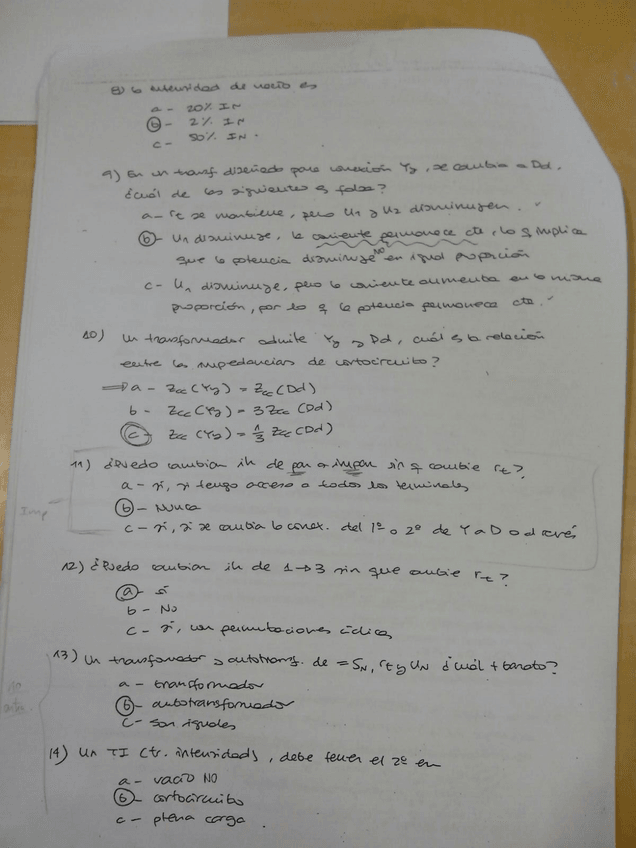 8) la intensidad de vacío es
a - 20% IN
b - 2% IN
c - 50% IN.
9) En un transf. diseñado para conexión Yy, se cambia a Dd.
¿Cuál de las siguientes es falsa?
a - rt se mantiene, pero U1 y U2 disminuyen.
b - U1 disminuye, la corriente permanece cte, lo q implica
que la potencia disminuye en igual proporción
NO
c - U1 disminuye, pero la corriente aumenta en la misma
proporción, por lo q la potencia permanece cte.
10) Un transformador admite Yy y Dd, cuál es la relación
entre las impedancias de cortocircuito?
a - Zcc (Yy) = Zcc (Dd)
b - Zcc (Yy) = 3 Zcc (Dd)
c - Zcc (Yy) = 1/3 Zcc (Dd)
11) ¿Puedo cambiar ih de par a impar sin q cambie rt?
a - si, si tengo acceso a todos los terminales
Imp
b - Nunca
c - si, si se cambia la conex. del 1º o 2º de Y a D o al revés
12) ¿Puedo cambiar ih de 1→3 sin que cambie rt?
a - si
b - No
c - si, con permutaciones cíclicas
13) Un transformador y autotransf. de = SN, rt y UN ¿cuál + barato?
a - transformador
b - autotransformador
c - son iguales
14) Un TI (tr. intensidad), debe tener el 2º en
a - vacío NO
b - cortocircuito
c - plena carga